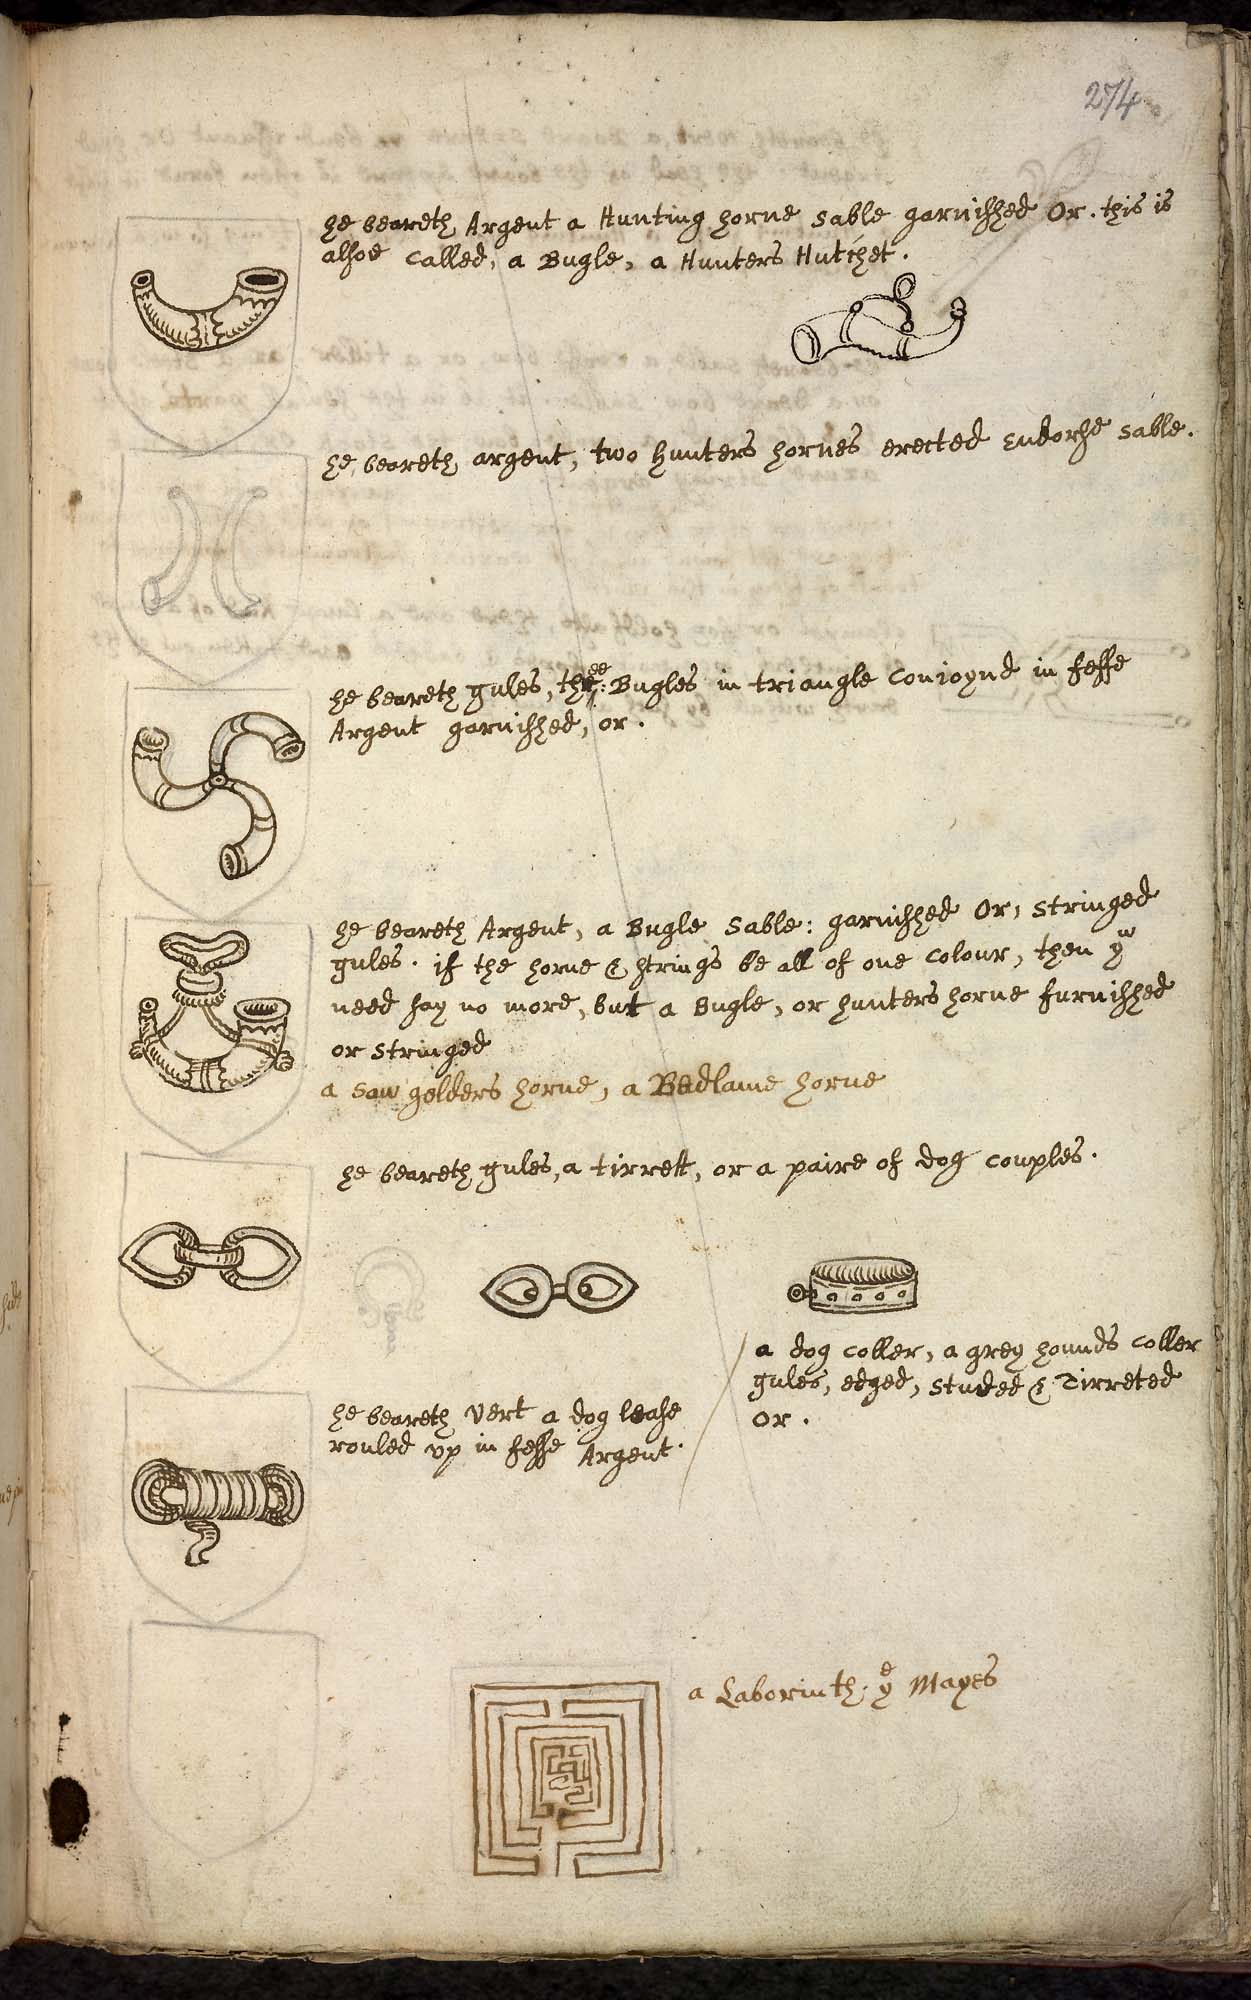 274
he beareth Argent a Hunting horne Sable garnished Or. this is
alsoe called, a Bugle, a Hunters Hutchet.
he beareth argent, two hunters hornes erected Endorse Sable.
he beareth gules, three: Bugles in triangle Conioynd in fesse
Argent garnished, or.
he beareth Argent, a Bugle Sable: garnished Or, Stringed
gules. if the horne & strings be all of one colour, then yᵘ
need say no more, but a Bugle, or hunters horne furnished
or Stringed
a Saw gelders horne, a Bedlame horne
he beareth gules, a tirrett, or a paire of dog couples.
a dog coller, a grey hounds coller
gules, edged, studed & Tirreted
or.
he beareth vert a dog lease
rouled vp in fesse Argent.
a Laborinth. yᵉ Mayes